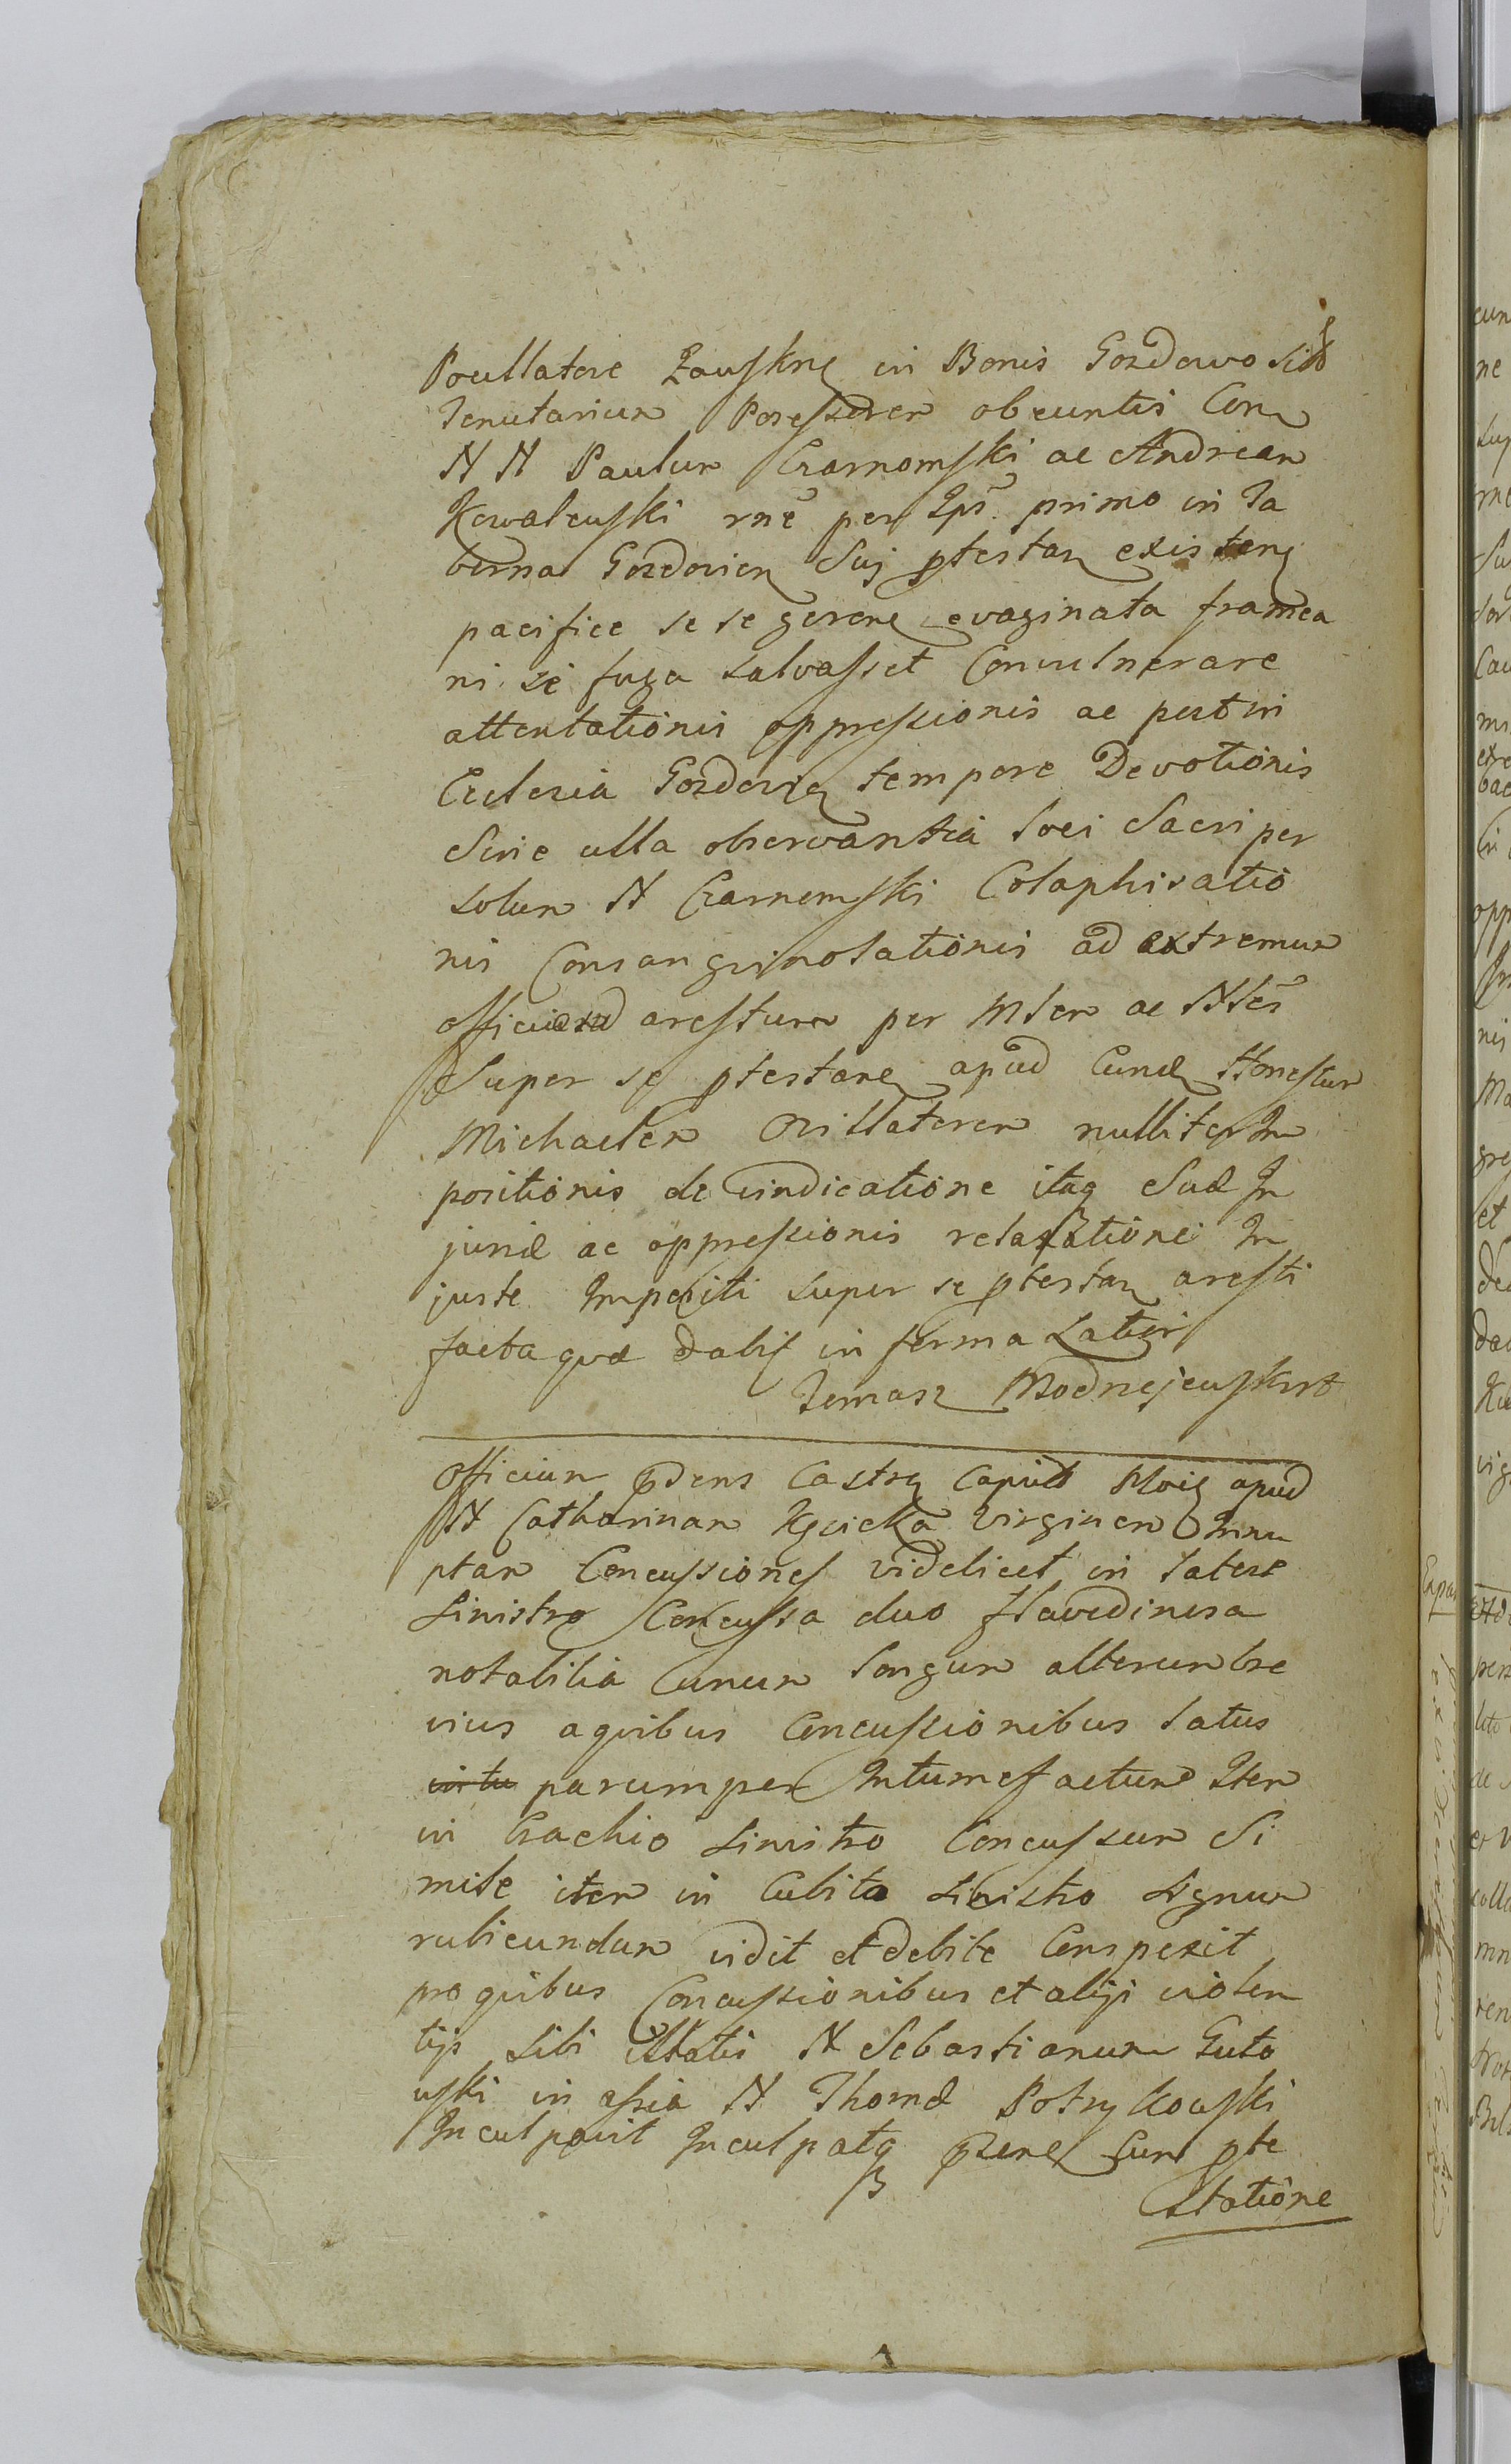 Pocillatore Zauskny in Bonis Gozdowo sitt
Tenutarium Possessorem obeuntis Con
N N Paulum Czarnomski ac Andream
Kowaleuski rne per Ips primo in Ta
berna Gozdovien Suj ptestan existen
pacifice se se geren evaginata framea
ni se fuga salvasset Convulnerare
attentationis oppressionis ac post in
Ecclesia Gozdovien tempore Devotionis
Sine ulla observantia loci Sacri per
solum N Czarnomski Colaphisatio
nis Consanguinolationis ad extremum
officiosum arestum per Mlem ac Nlem
Super se ptestan apud Eund Honestum
Michaelem Ocillatorem nulliter Im
positionis de vindicatione itaq Suæ In
juriæ ac oppressionis relaxatione In
juste Impositi super se ptestan aresti
facta quæ dabit in forma Latiori
Tomasz Modrzejeuski
Officium pdens Castren Capitt Ploc apud
N Catharinam Kęsicka Virginem Innu
ptam Concussiones videlicet in latere
Sinistro Concussa duo flavedinosa
notabilia unum longum alterum bre
vius a quibus Concussionibus latus
parumper Intumefactum Item
in brachio sinistro Concussum Si
mile item in Cubito sinistro signum
rubicundum vidit et debite Conspexit
pro quibus Concussionibus et alijs violen
tijs sibi illatis N Sebastianum Guto
uski in assia N Thomæ Potrykouski
Inculpavit Inculpatq pzens cum pte
statione